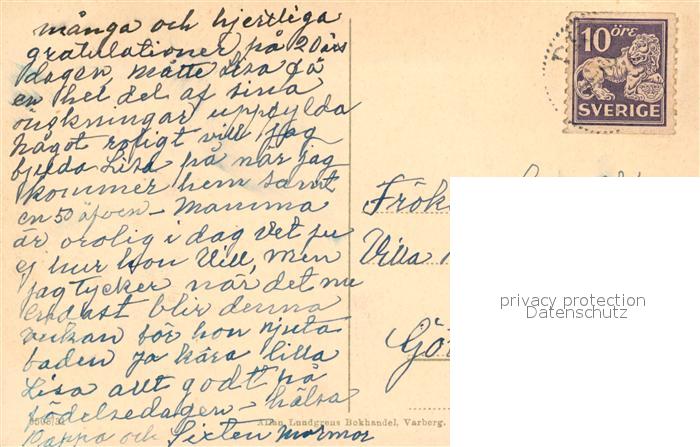 många och hjertliga
gratulationer, på 20 års
dagen, måtte Lisa få
en hel del af sina
önskningar uppfylda
något roligt vill jag
bjuda Lisa på när jag
kommer hem samt
en 50 - Mamma
är orolig i dag vet ju
ej hur hon Vill, men
jag tycker när det nu
endast blir denna
veckan för hon njuta
baden Ja kära lilla
Lisa allt godt på
födelsedagen - hälsa
Pappa och Sixten mormor
10 ÖRE
SVERIGE
Frök
Villa
Göt
Allan Lundgrens Bokhandel, Varberg.
privacy protection
Datenschutz